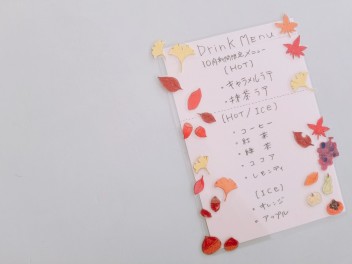 Drink Menu
10月期間限定メニュー
(HOT)
・キャラメルラテ
・抹茶ラテ
(HOT/ICE)
・コーヒー
・紅茶
・緑茶
・ココア
・レモンティ
(ICE)
・オレンジ
・アップル